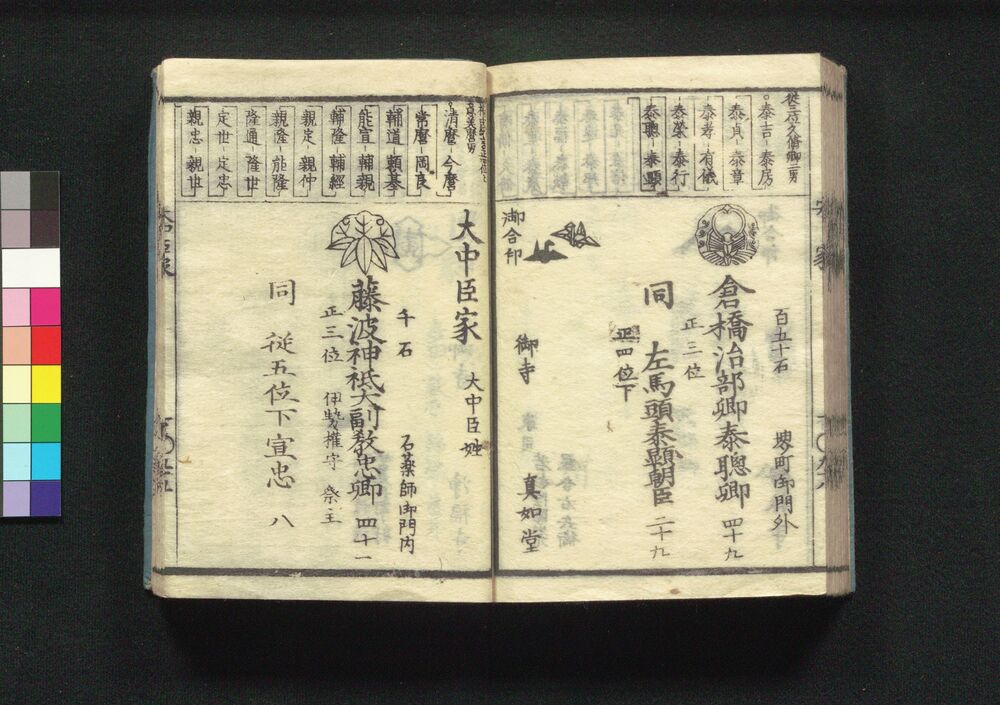 従三位久脩卿二男
泰吉-泰房
泰貞-泰章
泰孝-有儀
泰栄-泰行
泰聰-泰顕
百五十石　堺町御門外
倉橋治部卿泰聰卿 四十九
正三位
同　左馬頭泰顕朝臣 二十九
正四位下
御合印
御寺　真如堂
清麿-今麿
常麿-岡良
輔道-頼基
能宣-輔親
輔隆-輔經
親定-親仲
親隆-能隆
隆通-隆世
定世-定忠
親忠-親世
大中臣家　大中臣姓
千石　石薬師御門内
藤波神祇大副教忠卿 四十一
正三位　伊勢権守　祭主
同　従五位下宣忠　八